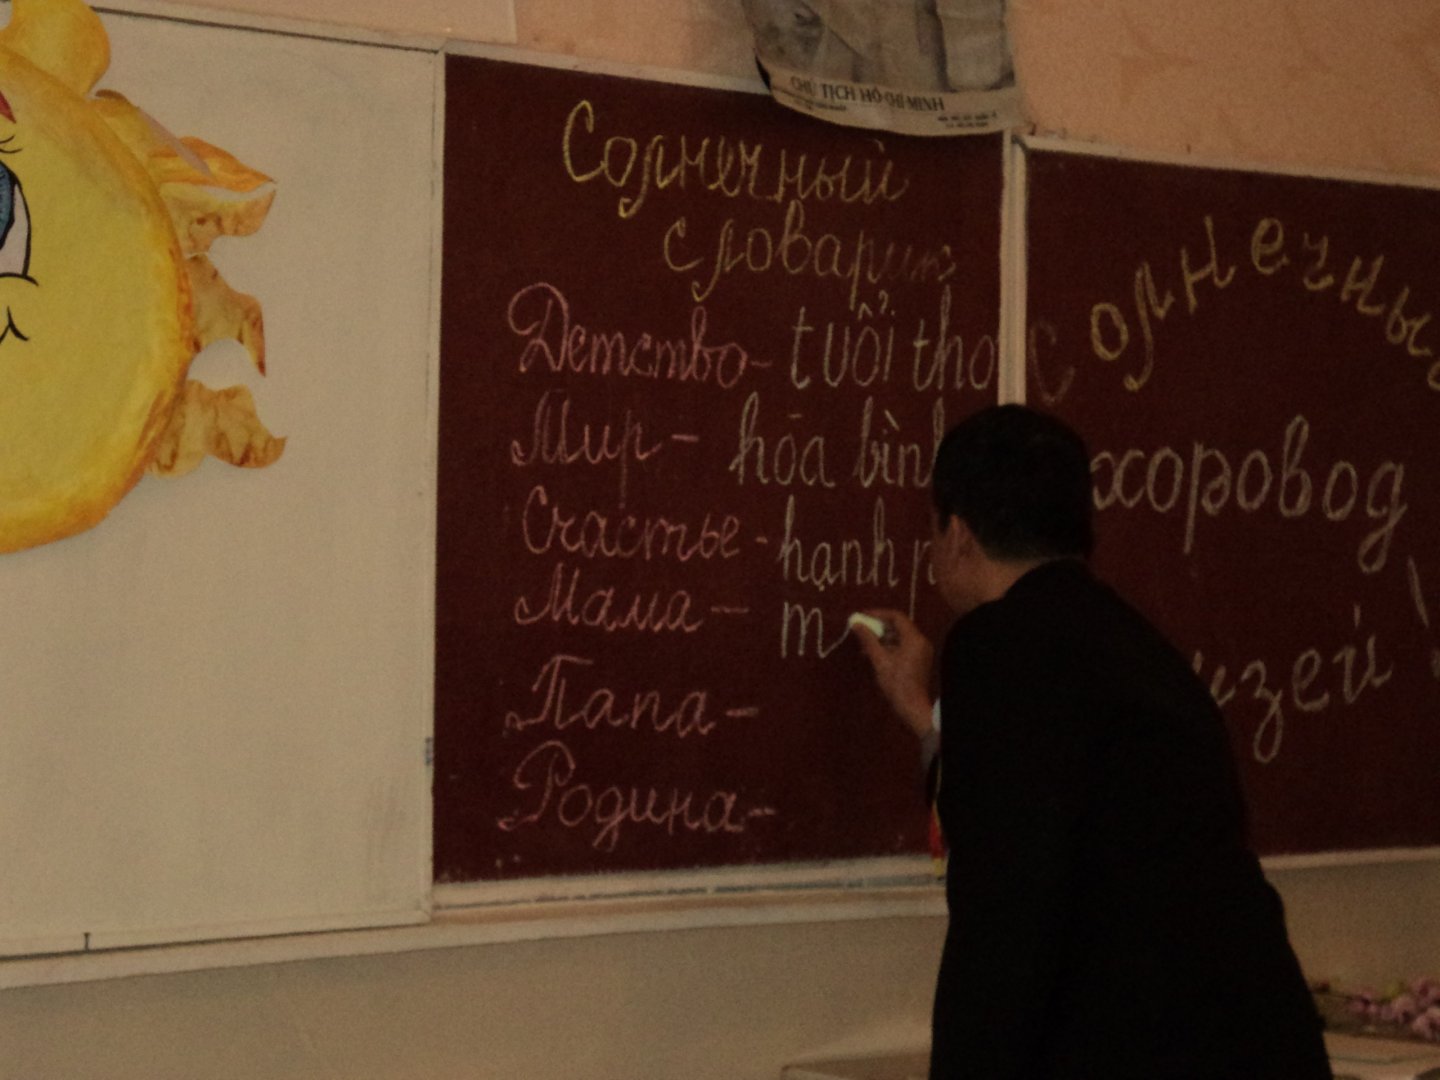 CHỦ TỊCH HỒ CHÍ MINH
Солнечный
словарик
Детство - tuổi thơ
Мир - hòa bình
Счастье - hạnh p
Мама - m
Папа -
Родина -
Солнечны
хоровод
узей !